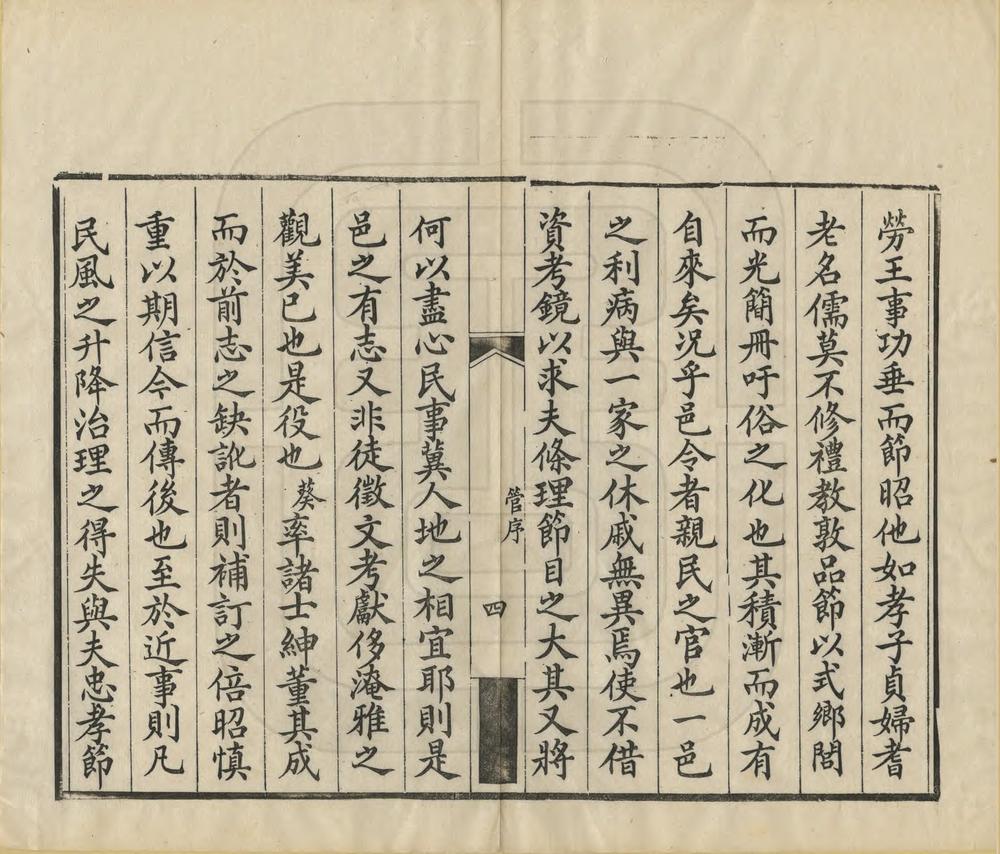 勞王事功垂而節昭他如孝子貞婦耆
老名儒莫不修禮教敦品節以式鄉閭
而光簡冊吁俗之化也其積漸而成有
自來矣况乎邑令者親民之官也一邑
之利病與一家之休戚無異焉使不借
資考鏡以求夫條理節目之大其又將
管序
四
何以盡心民事冀人地之相宜耶則是
邑之有志又非徒徵文考獻侈淹雅之
觀美已也是役也葵率諸士紳董其成
而於前志之缺訛者則補訂之倍昭慎
重以期信今而傳後也至於近事則凡
民風之升降治理之得失與夫忠孝節